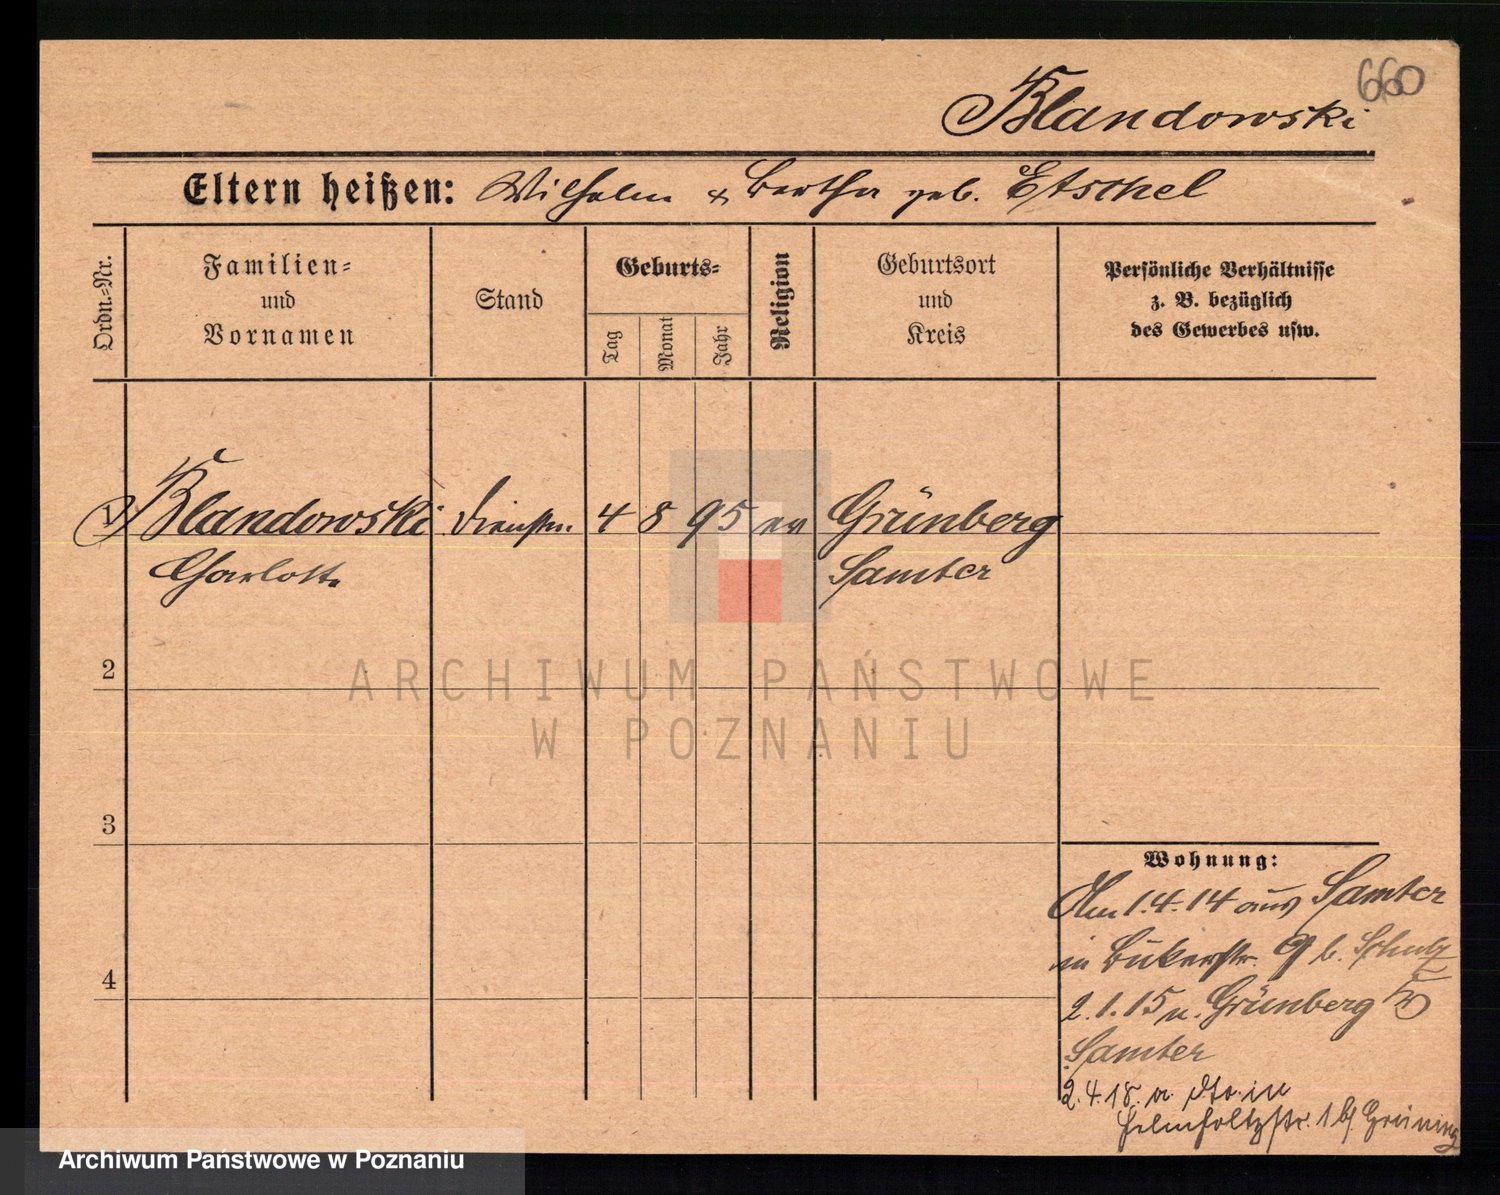 660
Blandowski
Eltern heißen: Wilhelm & Bertha geb. Etschel
Ordn.-Nr.
Familien-
und
Vornamen
Stand
Geburts-
Tag
Monat
Jahr
Religion
Geburtsort
und
Kreis
Persönliche Verhältnisse
z. B. bezüglich
des Gewerbes usw.
1 Blandowski Dienstm. 4 8 95 ev Grünberg
Charlotte Samter
2
ARCHIWUM PAŃSTWOWE
W POZNANIU
3
4
Wohnung:
Am 1.4.14 aus Samter
in Bukerstr. 9 b. Schulz
2.1.15 n. Grünberg Kr
Samter
2.4.18. a. dto. in
Helmholtzstr. 1 bf Grüning
Archiwum Państwowe w Poznaniu